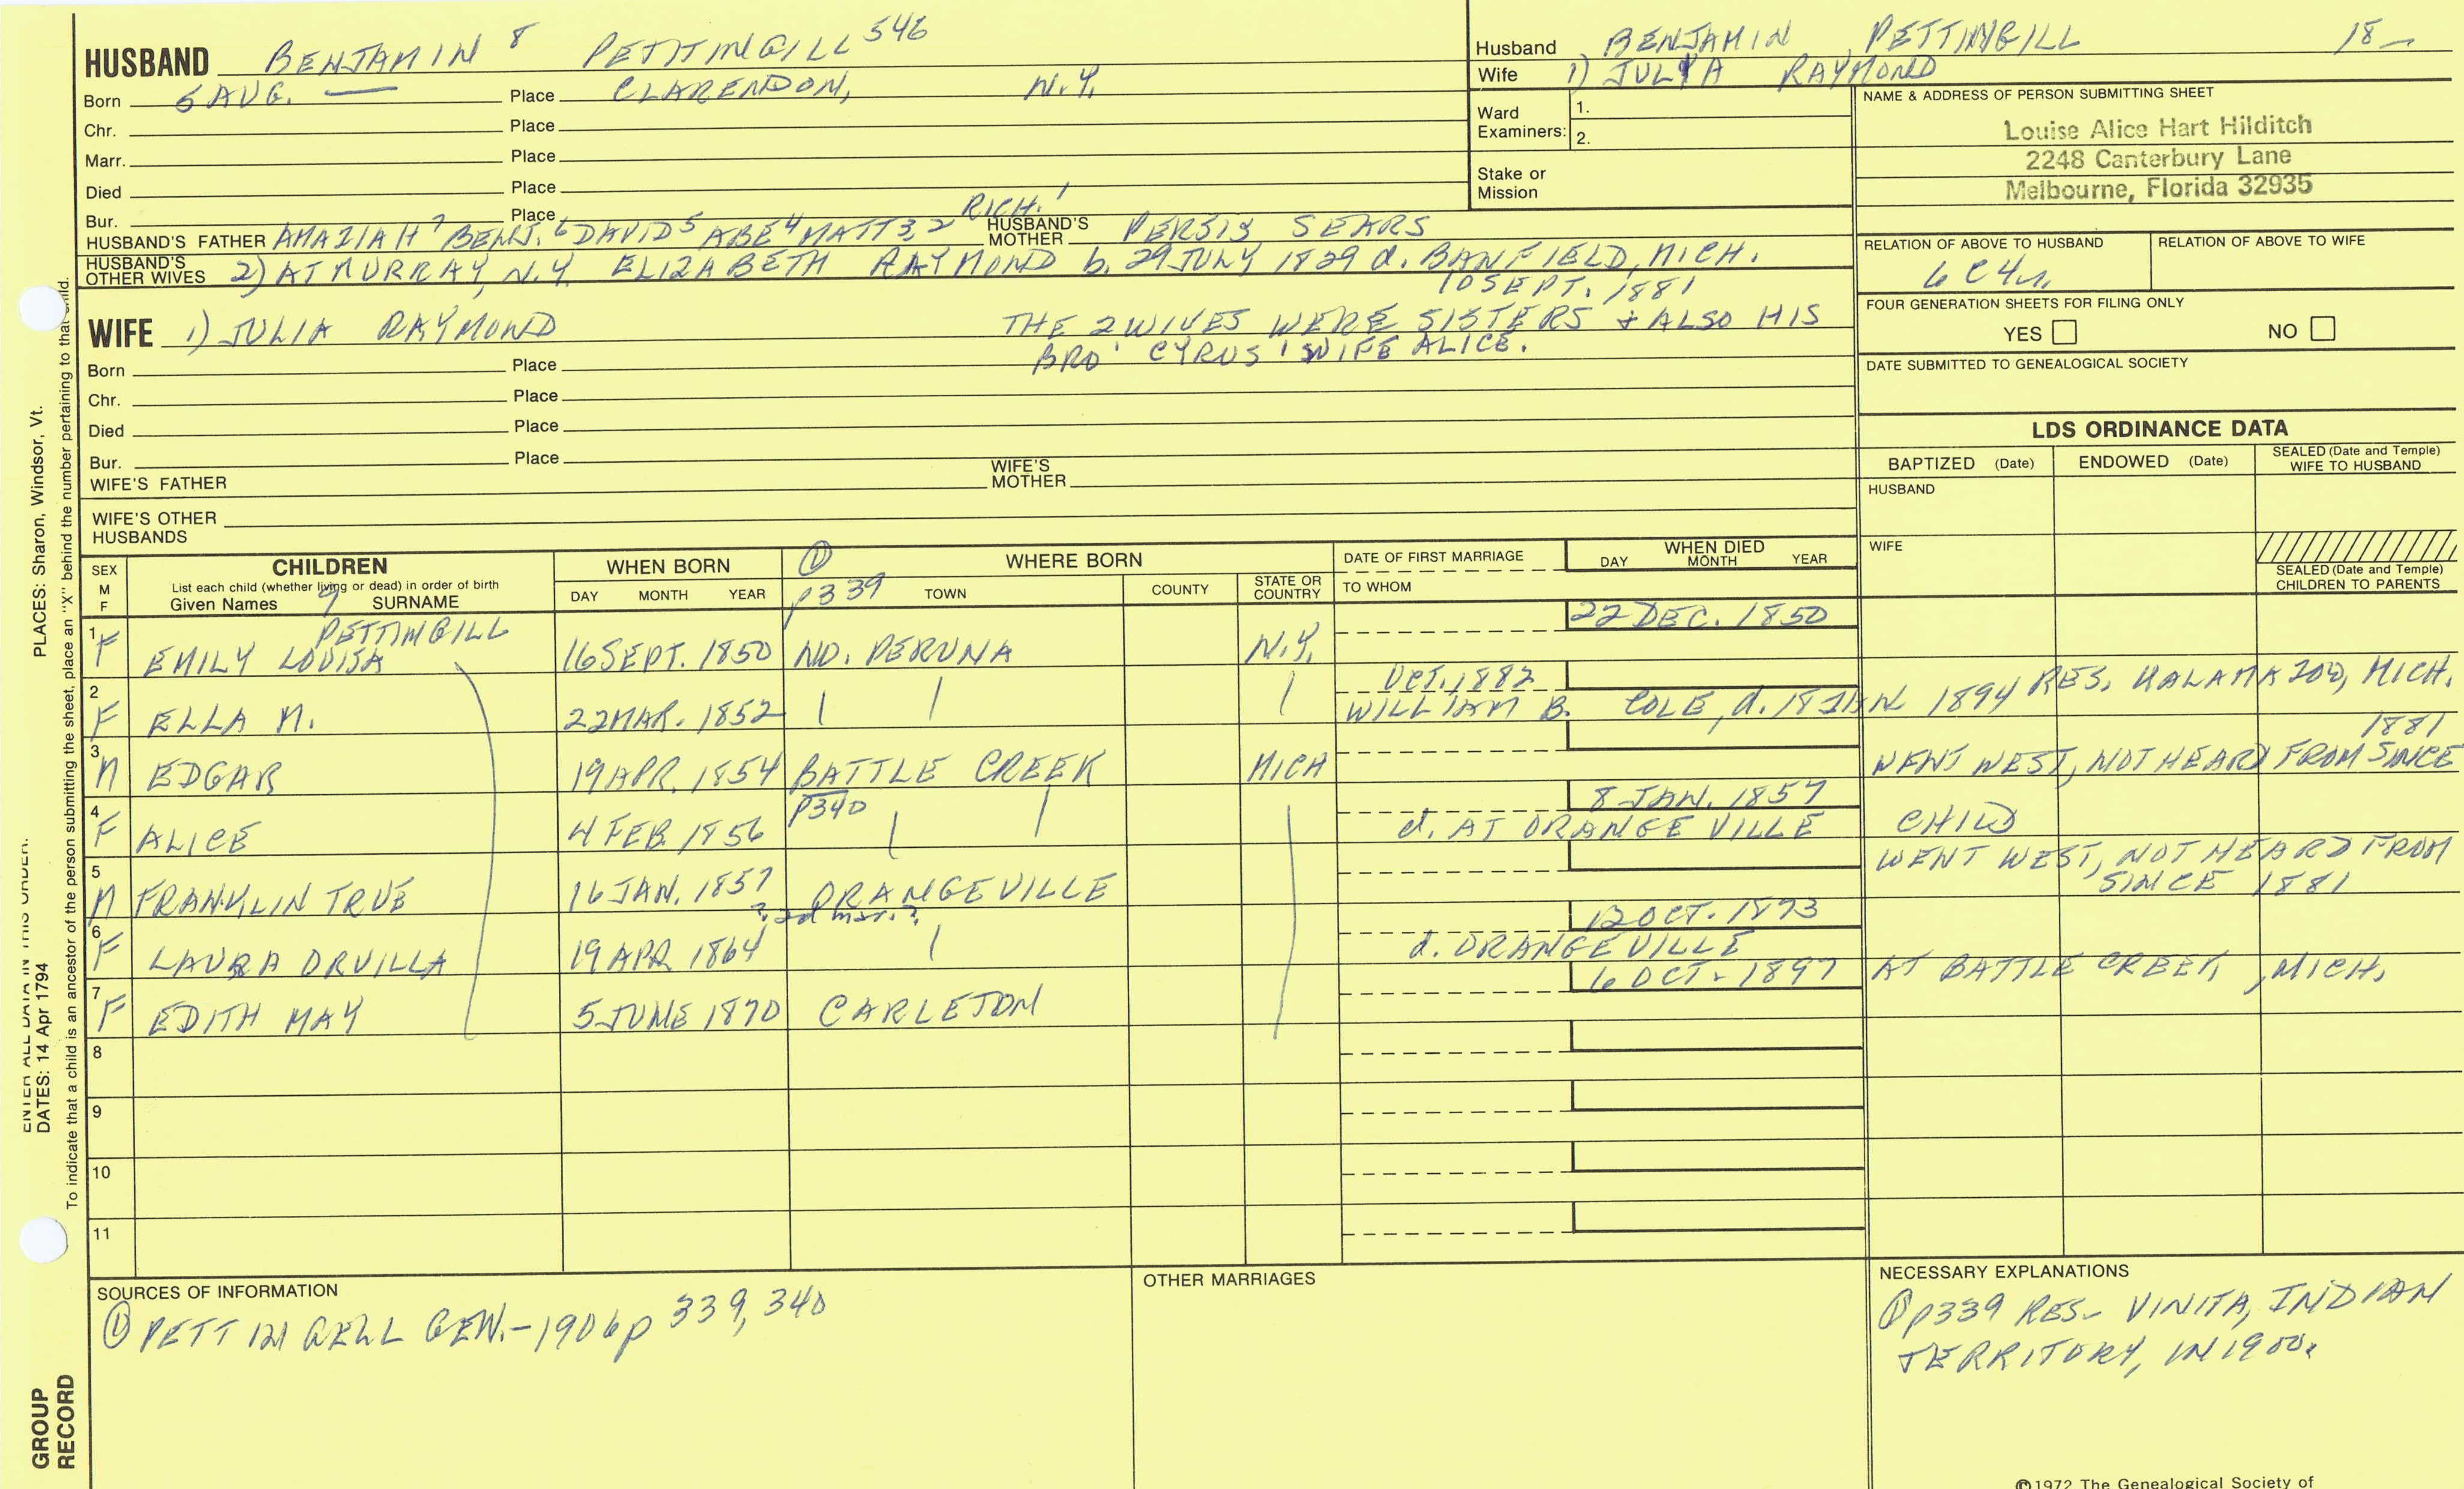 HUSBAND BENJAMIN 8 PETTINGILL 546
Born 5 AUG. — Place CLARENDON, N.Y.
Chr. Place
Marr. Place
Died Place
Bur. Place
HUSBAND'S FATHER AMAZIAH 7 BENJ. 6 DAVID 5 ABE 4 MATT 3, 2 RICH. 1 HUSBAND'S MOTHER PERSIS SEARS
HUSBAND'S OTHER WIVES 2) AT MURRAY, N.Y. ELIZABETH RAYMOND b. 29 JULY 1829 d. BANFIELD, MICH.
10 SEPT. 1881
WIFE 1) JULIA RAYMOND
THE 2 WIVES WERE SISTERS & ALSO HIS
BRO' CYRUS' WIFE ALICE.
Born Place
Chr. Place
Died Place
Bur. Place
WIFE'S FATHER WIFE'S MOTHER
WIFE'S OTHER HUSBANDS
Husband BENJAMIN PETTINGILL 18—
Wife 1) JULIA RAYMOND
Ward Examiners: 1.
2.
Stake or Mission
NAME & ADDRESS OF PERSON SUBMITTING SHEET
Louise Alice Hart Hilditch
2248 Canterbury Lane
Melbourne, Florida 32935
RELATION OF ABOVE TO HUSBAND RELATION OF ABOVE TO WIFE
6C4r.
FOUR GENERATION SHEETS FOR FILING ONLY
YES NO
DATE SUBMITTED TO GENEALOGICAL SOCIETY
LDS ORDINANCE DATA
BAPTIZED (Date) ENDOWED (Date) SEALED (Date and Temple) WIFE TO HUSBAND
HUSBAND
WIFE
SEALED (Date and Temple) CHILDREN TO PARENTS
SEX M F
CHILDREN
List each child (whether living or dead) in order of birth
Given Names 9 SURNAME
WHEN BORN
DAY MONTH YEAR
① p339
WHERE BORN
TOWN COUNTY STATE OR COUNTRY
DATE OF FIRST MARRIAGE
TO WHOM
WHEN DIED
DAY MONTH YEAR
PETTINGILL 22 DEC. 1850
1 F EMILY LOUISA 16 SEPT. 1850 NO. PERUNA N.Y.
OCT. 1882
2 F ELLA M. 22 MAR. 1852 WILLIAM B. COLE, d. 18 JAN 1894 RES. KALAMAZOO, MICH.
1881
3 M EDGAR 19 APR. 1854 BATTLE CREEK MICH WENT WEST, NOT HEARD FROM SINCE
p340 8 JAN. 1857
4 F ALICE 4 FEB. 1856 d. AT ORANGEVILLE CHILD
5 M FRANKLIN TRUE 16 JAN. 1857 ORANGEVILLE WENT WEST, NOT HEARD FROM SINCE 1881
? 2d mar. ? 12 OCT. 1893
6 F LAURA ORVILLA 19 APR 1864 d. ORANGEVILLE
6 OCT. 1897 AT BATTLE CREEK, MICH.
7 F EDITH MAY 5 JUNE 1870 CARLETON
8
9
10
11
SOURCES OF INFORMATION
① PETTINGELL GEN. - 1906 p 339, 340
OTHER MARRIAGES
NECESSARY EXPLANATIONS
① p339 RES- VINITA, INDIAN
TERRITORY, IN 1900.
©1972 The Genealogical Society of
ENTER ALL DATA IN THIS ORDER.
DATES: 14 Apr 1794 PLACES: Sharon, Windsor, Vt.
To indicate that a child is an ancestor of the person submitting the sheet, place an "X" behind the number pertaining to that child.
GROUP
RECORD